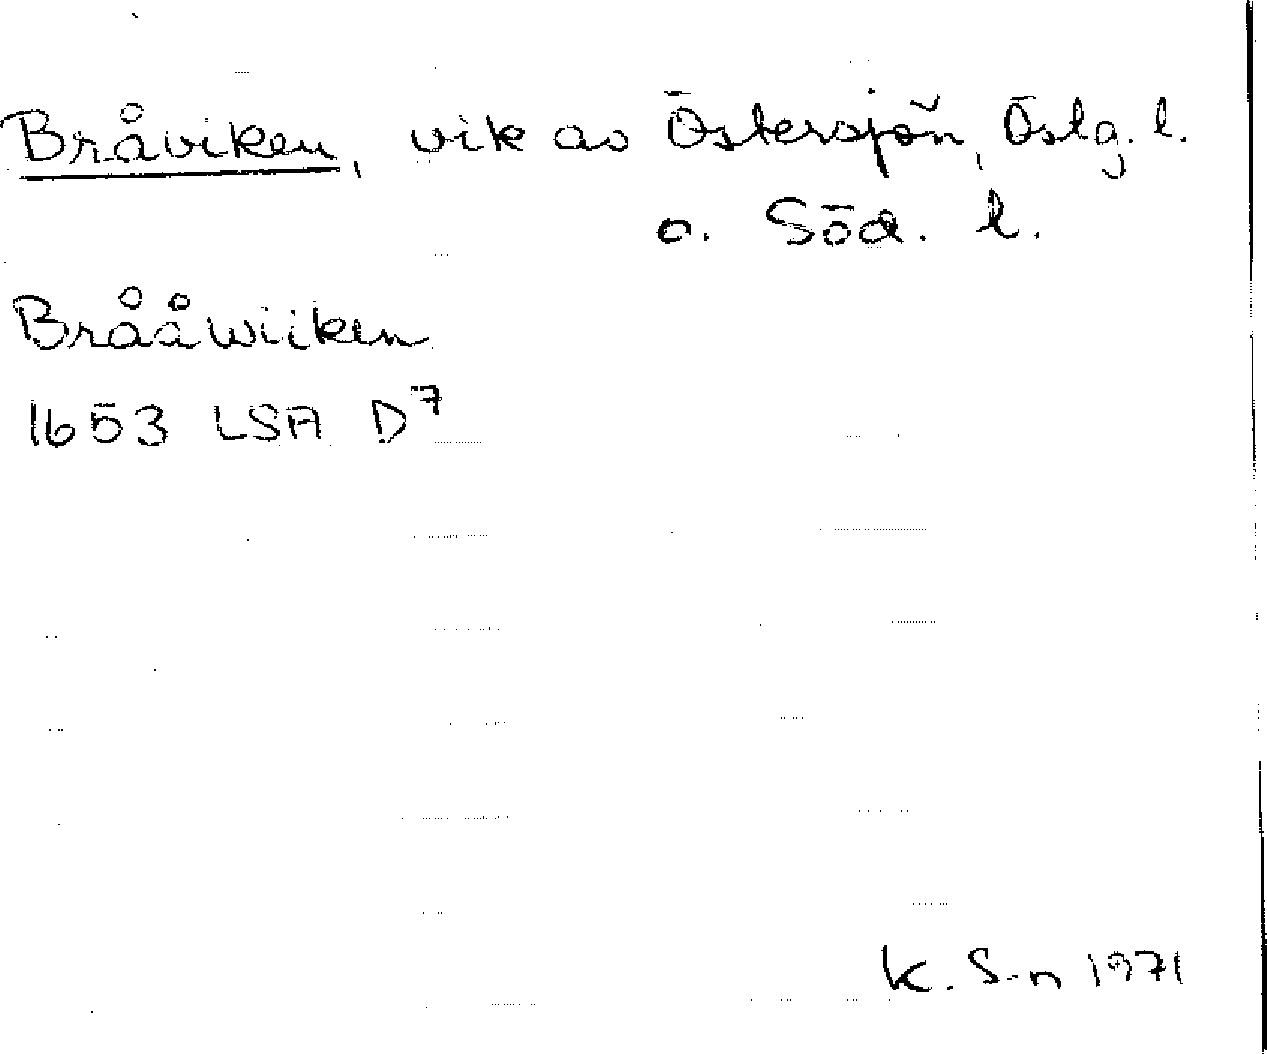 Bråviken, vik av Östersjön, Östg. l.
o. Söd. l.
Brååwiiken
1653 LSA D7
K. S-n 1971